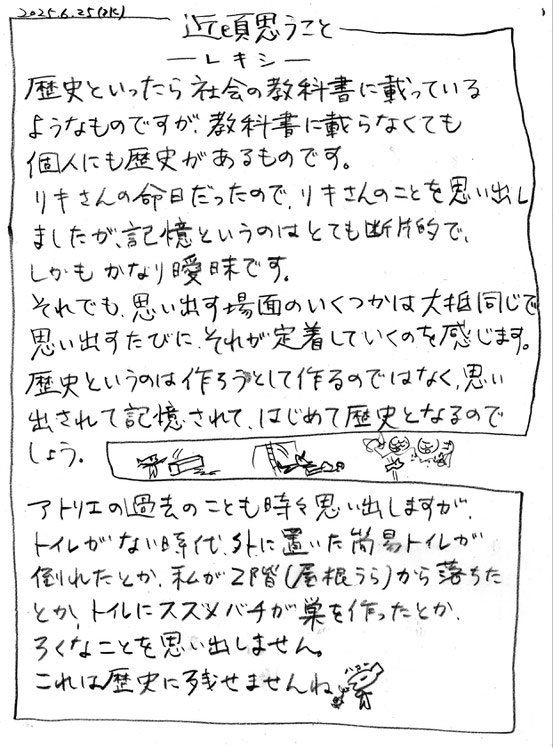 2025.6.25(水)
近頃思うこと
―レキシ―
歴史といったら社会の教科書に載っている
ようなものですが、教科書に載らなくても
個人にも歴史があるものです。
リキさんの命日だったので、リキさんのことを思い出し
ましたが、記憶というのはとても断片的で、
しかもかなり曖昧です。
それでも、思い出す場面のいくつかは大抵同じで
思い出すたびに、それが定着していくのを感じます。
歴史というのは作ろうとして作るのではなく、思い
出されて記憶されて、はじめて歴史となるので
しょう。
アトリエの過去のことも時々思い出しますが、
トイレがない時代、外に置いた簡易トイレが
倒れたとか、私が2階(屋根うら)から落ちた
とか、トイレにスズメバチが巣を作ったとか、
ろくなことを思い出しません。
これは歴史に残せませんね